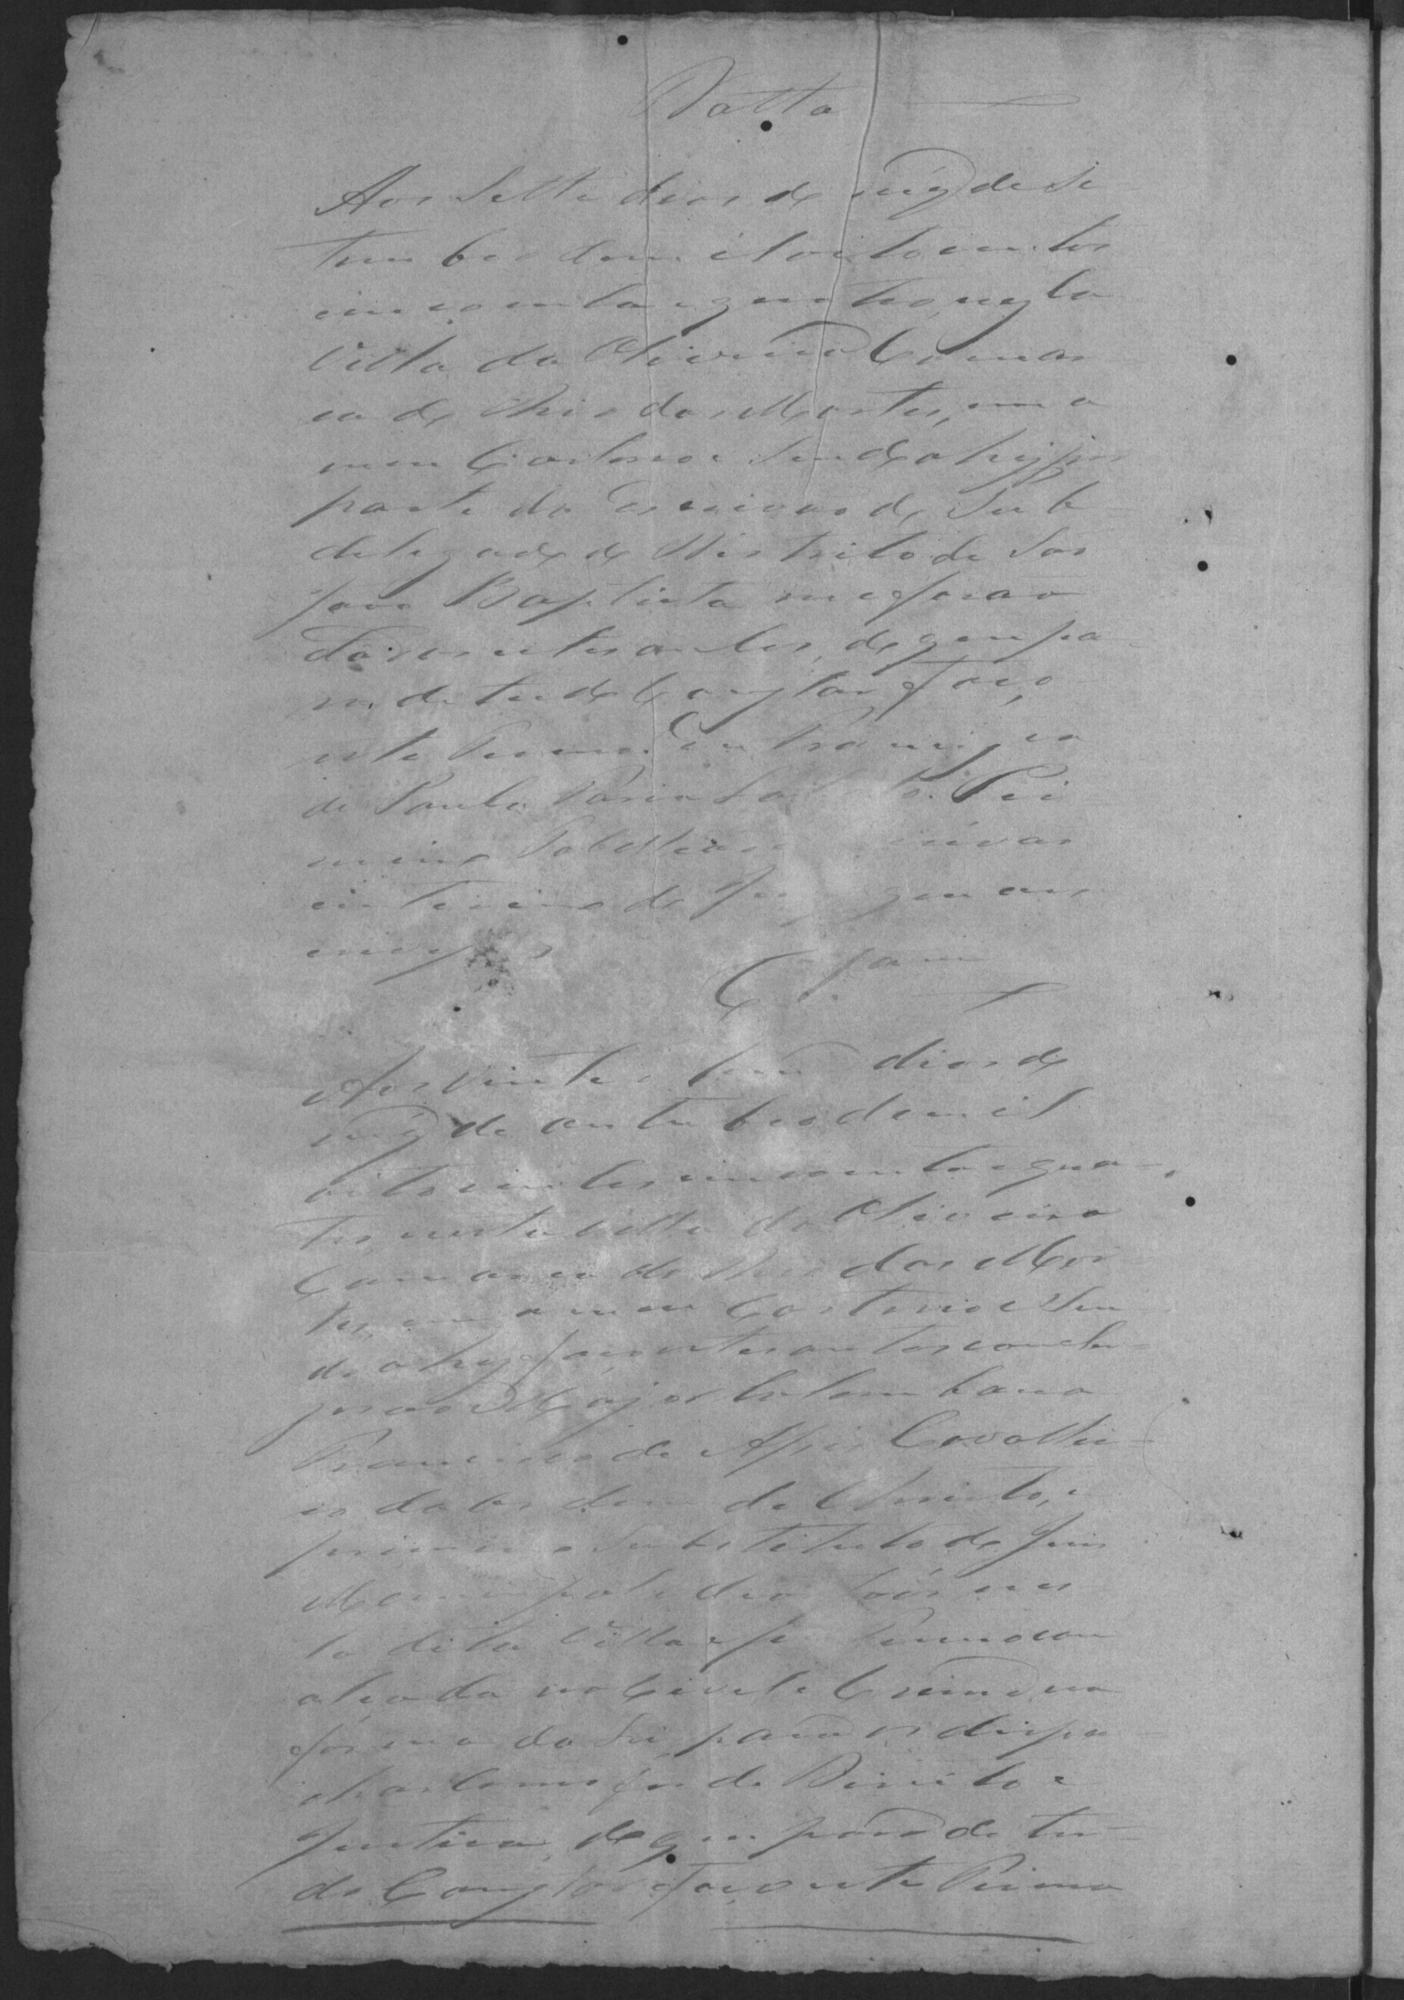 Datta
Aos Sette dias do mez de Se
tembro de mil oito centos
cincoenta e quatro, nesta
Villa da Oliveira Comar
ca do Rio das Mortes, em o
meu Cartorio e sendo ahi, por
parte do Escrivão do Sub
delegado do Districto de São
João Baptista me forão
dados estes autos, do que pa
ra de tudo Constar, faço
este Termo. Eu Francisco
de Paula Pri
meiro Tabellião Escrivão
interino do Jury que as
escrevi
Aos vinte dias do
mez de outubro de mil
oito centos cincoenta e qua
tro, nesta Villa da Oliveira
Comarca do Rio das Mor
tes, em o meu Cartorio e Sen
do ahy faço estes autos conclu
sos ao Major
Francisco de Assis Cavallei
ro da ordem de Christo, e
primeiro Substituto do Juis
Municipal e dos Orfãos nes
ta dita Villa e seu Termo com
alçada no Civel e Crime, na
forma da Lei, para os despa
char como for de Direito e
Justiça, do que para de tu
do Constar faço este Termo